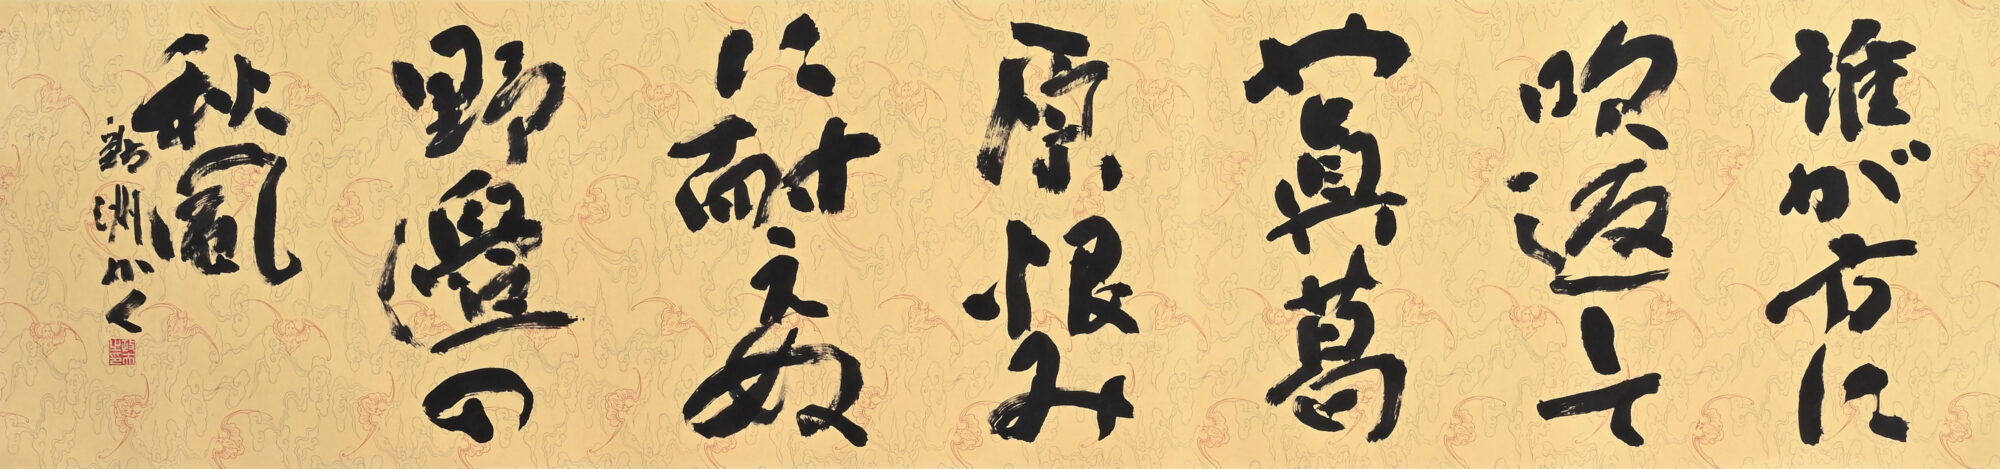 誰が方に
吹返して
や眞葛
原恨み
に耐えぬ
野邊の
秋風
洲かく